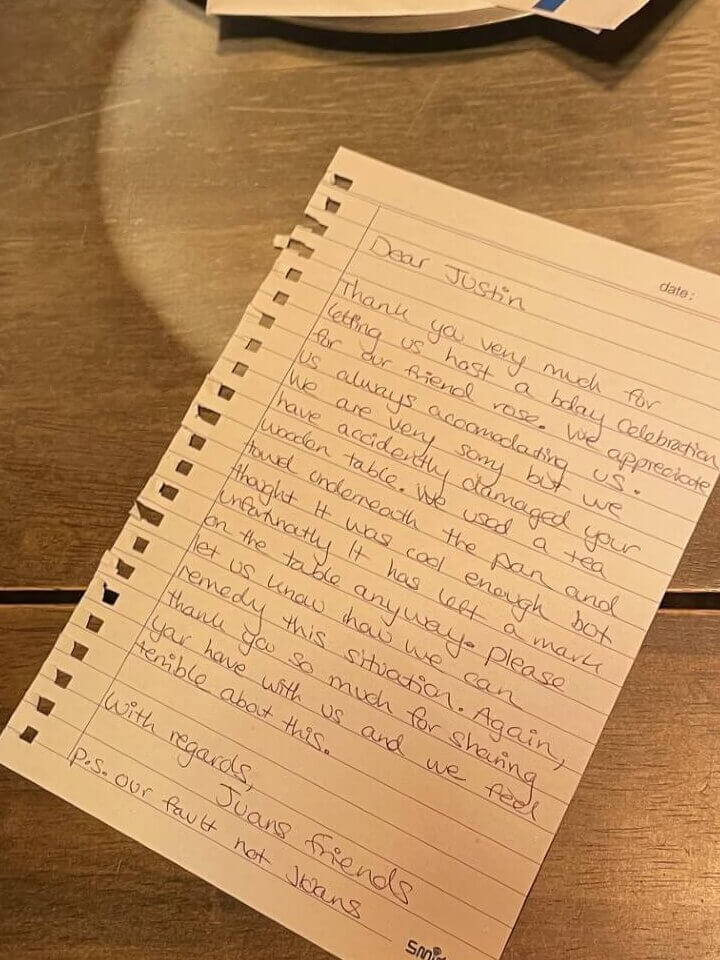 date:
Dear Justin
Thank you very much for
letting us host a bday celebration
for our friend rose. We appreciate
us always accomodating us.
We are very sorry but we
have accidently damaged your
wooden table. We used a tea
towel underneath the pan and
thought it was cool enough but
unfortunatly it has left a mark
on the table anyway. Please
let us know how we can
remedy this situation. Again,
thank you so much for sharing
your have with us and we feel
terrible about this.
With regards,
Juans friends
P.S. our fault not Juans